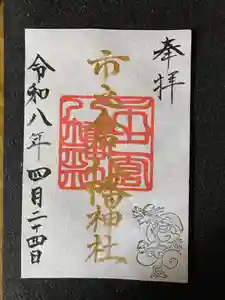 奉拝
市之倉八幡神社
令和八年四月二十四日